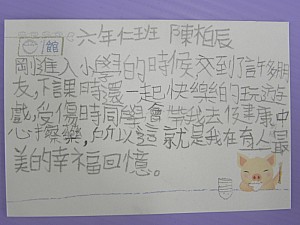 六年仁班 陳柏辰
剛進入小學的時候交到了許多朋
友,下課時還一起快樂的玩遊
戲,受傷時同學會帶我去健康中
心擦藥,所以這就是我在人最
美的幸福回憶。